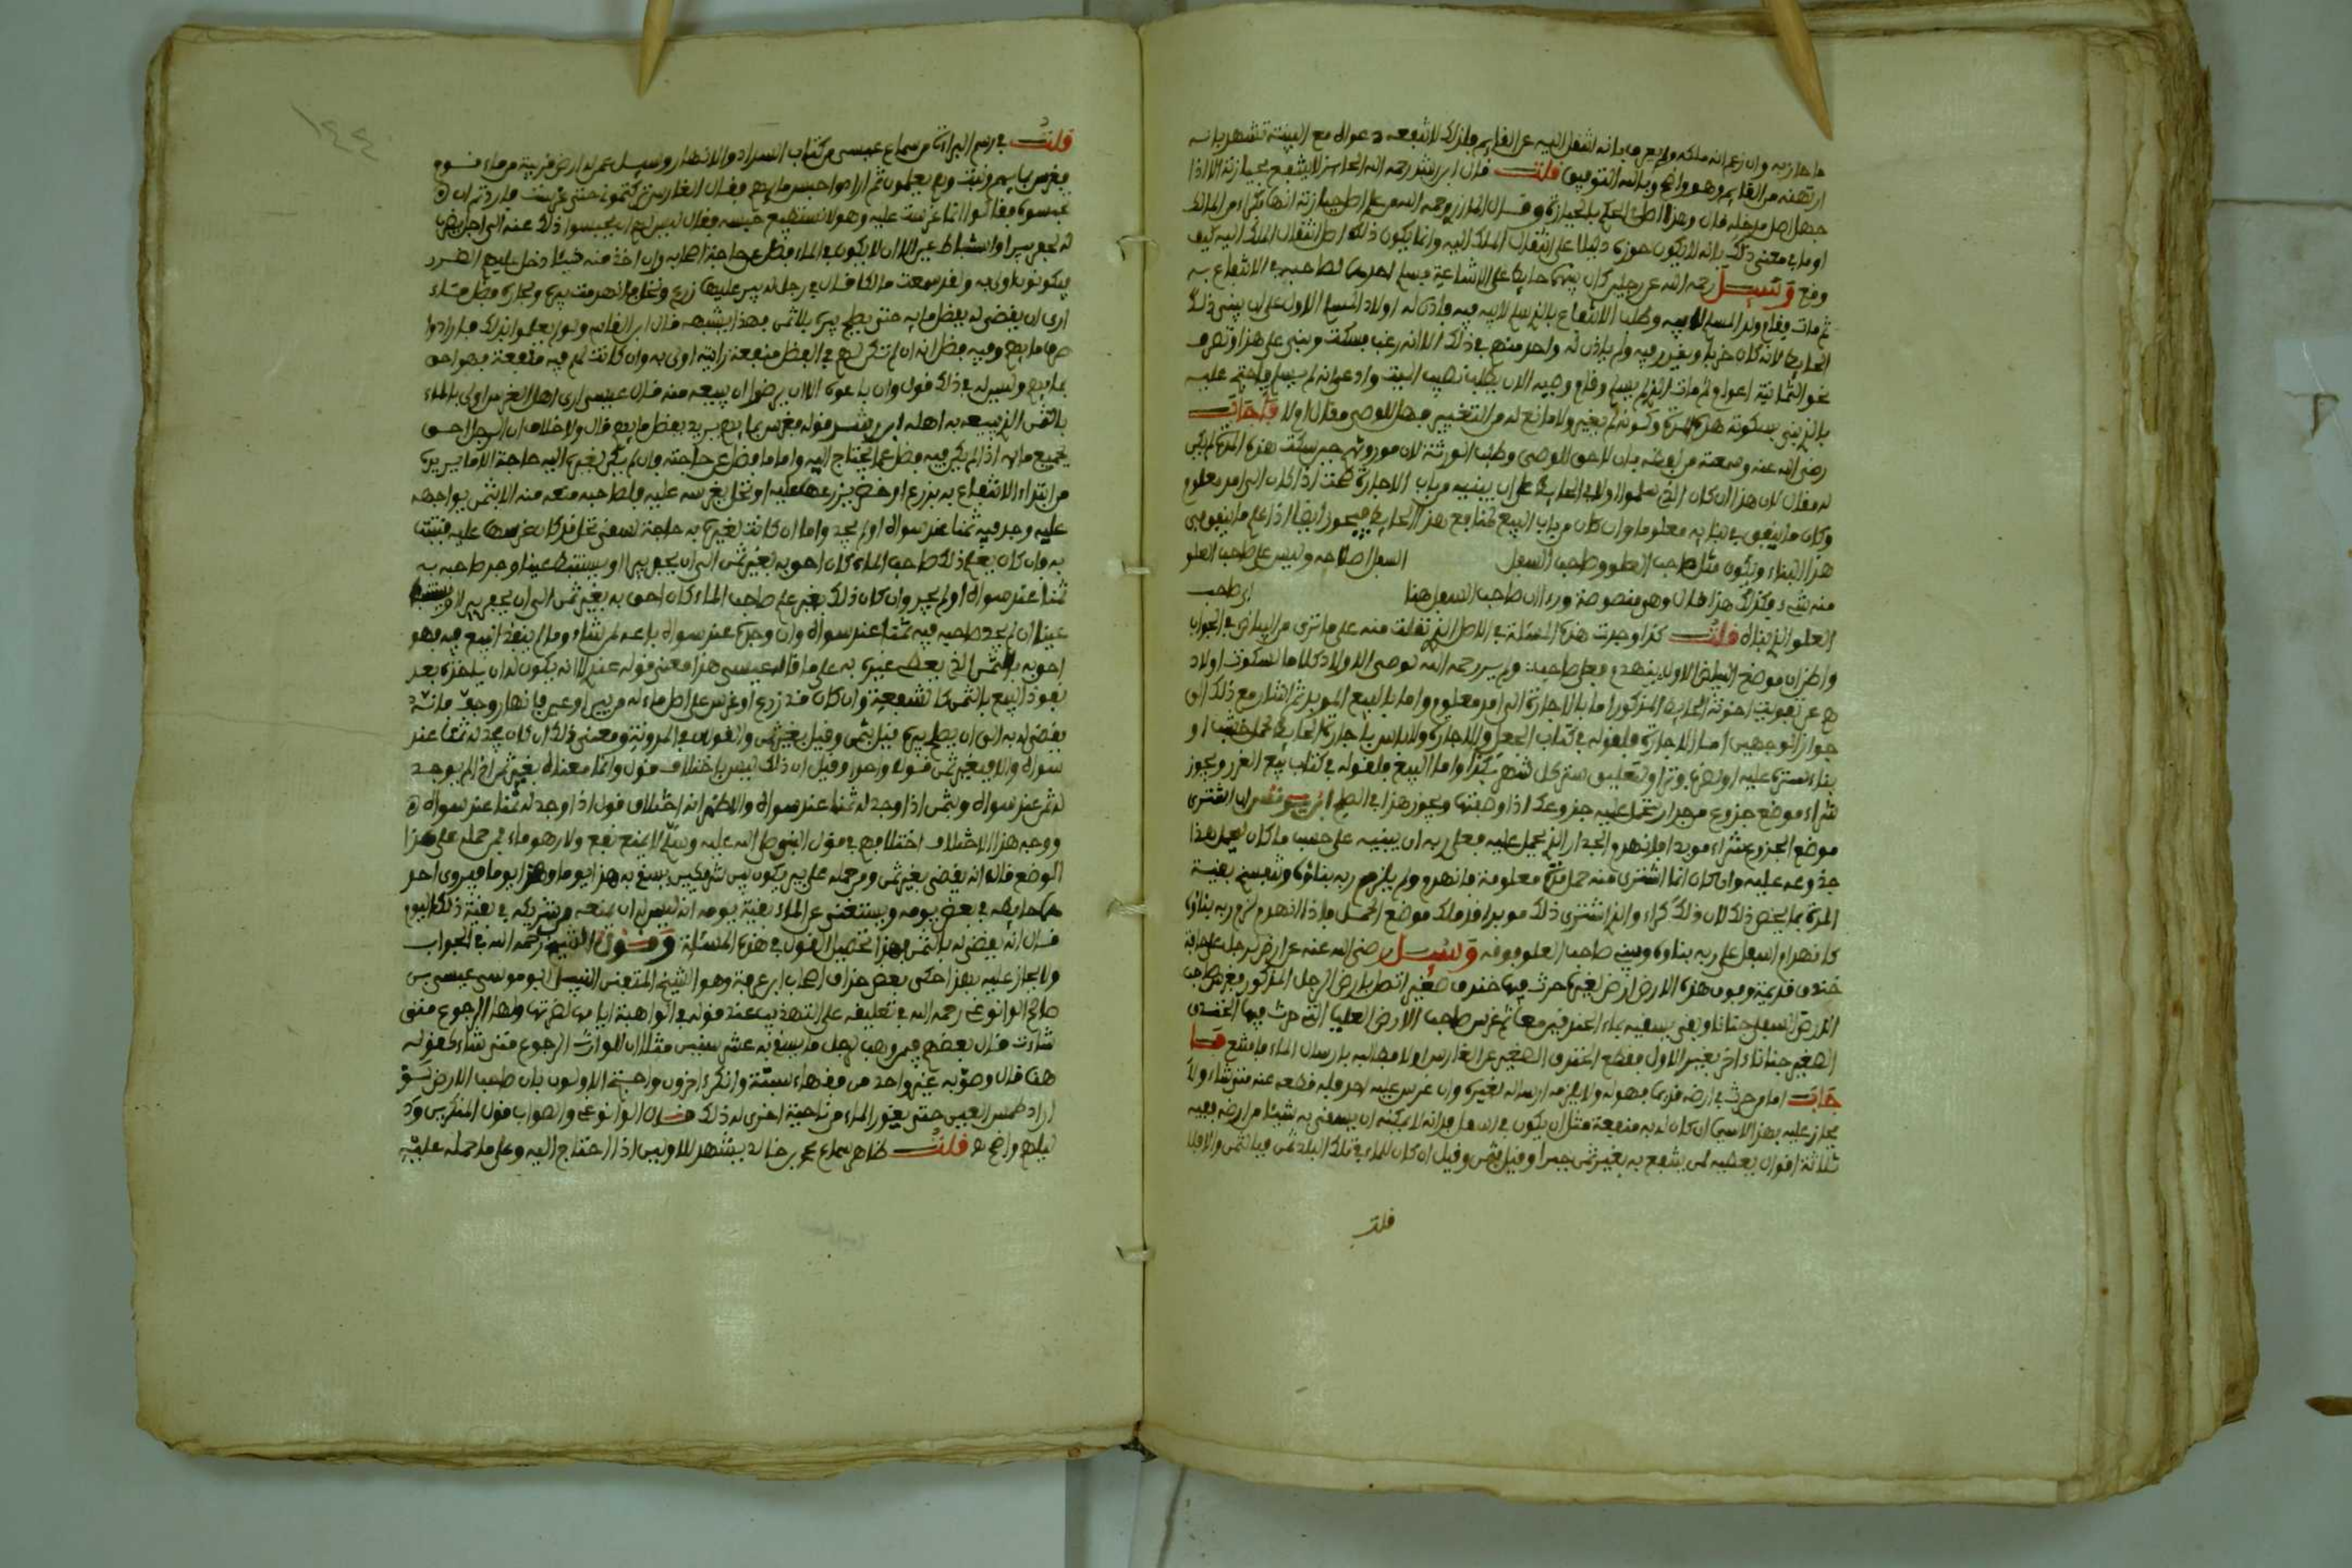 ما حاز به وان زعم انه ملكه ولم يعرف بانه انتقل اليه عن القايم فلذلك لا تنفعه دعواه مع البينة تشهد بانه
ارتهنه من القايم وهو واضح وبالله التوفيق قلت قال ابن رشد رحمه الله الحايز لا ينتفع بحيازته الا اذا
جهل اصل مدخله فيها وهذا اصل في الحكم بالحيازة
او ما في معنى ذلك بانه لا يكون حوزه دليلا على انتقال الملك اليه وانما يكون ذلك اصل انتقال الملك اليه كيف
وقع وسيل رحمه الله عن رجلين كان بينهما حايط على الاشاعة فسلم احدهما لصاحبه في الانتفاع به
ثم مات فقام ولد المسلم لابيه وطلب الانتفاع بالذي سلم لابيه فيه فاذن له اولاد المسلم الاول على ان يبني ذلك
الحايط لانه كان خربا ويغرز فيه ولم ياذن له واحد منهم في ذلك الا انه رغب فسكت وبنى على هذا وتصرف
نحو الثمانية اعوام ثم مات الذي لم يسلم وقام وصيه الان يطلب نصيب الميت وادعى انه لم يسلم فاحتج عليه
بالذي بنى بسكوته هذه المدة وكونه لم يغير ولا مانع له من التغيير فهل للوصي مقال اولا فاجاب
رضي الله عنه وسمعته من لفظه بان لا حق للوصي وطلب الورثة لان موروثهم حين سكت هذه المدة لم يكن
له مقال لان هذا ان كان الذين سلموا اولا في الحايط على ان يبنيه من باب الاجارة صحت اذا كان الى امد معلوم
وكان ما ينفق في بنايه معلوما وان كان من باب البيع لمنافع هذا الحايط فيجوز ايضا اذا علم ما ينفق في
هذا البناء ويكون مثل صاحب العلو وصاحب السفل السفل اصلاحه وليس على صاحب العلو
منه شيء فكذلك هذا قال وهي منصوصة وردا ان صاحب السفل هنا اي صاحب
العلو الذي بناه قلت كذا وجدت هذه المسئلة في الاصل الذي نقلت منه على ما ترى من البياض في الجواب
واظن ان موضع البياض الاول ينهدم فعلى صاحب ولم ير رحمه الله لوصي الاولاد كلاما لسكوت اولاد
هم عن تفويت اخوته الحايط المذكور اما بالاجارة الى امد معلوم واما بالبيع المؤبد ثم اشار مع ذلك الى
جواز الوجهين اما الاجارة فلقوله في كتاب الجعل والاجارة ولا باس باجارة الحايط لحمل خشب او
بناء سترة عليه او لضرب وتد او لتعليق ستر كل شهر بكذا واما البيع فلقوله في كتاب بيع الغرر ويجوز
شراء موضع جذوع من جدار تحمل عليه جذوعك اذا وصفتها ويجوز هذا في الصلح ابن يونس ان اشترى
موضع الجذوع شراء مؤبدا فانهدم الجدار الذي يحمل عليه فعلى ربه ان يبنيه على حسب ما كان ليحمل هذا
جذوعه عليه وان كان انما اشترى منه حمل مدة معلومة فانهدم ولم يلزم ربه بناؤه وتنفسخ بقية
المدة بما يخص ذلك لان ذلك كراء والذي اشترى ذلك مؤبدا قد ملك موضع الحمل فاذا انهدم لزم ربه بناؤه
كانهدام السفل على ربه بناؤه ويبني صاحب العلو فوقه وسيل رضي الله عنه عن ارض لرجل على حافة
خندق قديمة وفوق هذه الارض ارض لغيره حرث فيها خندق صغير اتصل بارض الرجل المذكور فغرس صاحب
الارض السفلى جنانا وبقي يسقيه بماء الخندقين معا ثم غرس صاحب الارض العليا التي حرث فيها الخندق
الصغير جنانا ءاخر بغير الاول فقطع الخندق الصغير عن الغارس اولا فطالبه بارسال الماء فامتنع فا
جاب اما من حرث في ارضه قديما فهو له ولا يلزمه ارساله لغيره وان غرس عليه احد فله قطعه عنه متى شاء ولا
يحاز عليه بهذا الاسيما ان كان له به منفعة مثل ان يكون في اسفل فدانه لا يمكنه ان يسقي به شيئا من ارضه ففيه
ثلاثة اقوال يعطيه لمن ينتفع به بغير ثمن جبرا وقيل بثمن وقيل ان كان للماء في تلك البلد ثمن فبالثمن والا فلا
قلت
١٤٤
قلت في رسم البراءة من سماع عيسى من كتاب السداد والانهار وسيل عمن له ارض قريبة من ماء قوم
فغرس بمايهم ونبت وهم يعلمون ثم ارادوا حبس مايهم فقال الغارس تركتموني حتى غرست فاردتم ان
تحبسوه فقالوا انما غرست عليه وهو لا نستطيع حبسه فقال ليس لهم ان يحبسوا ذلك عنه الى اجل يضرب
له لحفر بير او استنباط عين الا ان لا يكون في الماء فضل عن حاجة اصحابه وان اخذ منه شيئا دخل عليهم الضرر
فيكونون اولى به ولقد سمعت مالكا قال في رجل له بير عليها زرع ونخل فانهدمت بيره ولجاره فضل ماء
ارى ان يقضى له بفضل مايه حتى يصلح بيره بلا ثمن فهذا يشبهه قال ابن القاسم ولو لم يعلموا بذلك فارادوا
صرف مايهم وفيه فضل انه ان لم تكن لهم في الفضل منفعة رايته اولى به وان كانت لهم فيه منفعة فهم احق
بمايهم وليس له في ذلك قول وان باعوه الا ان يرضوا ان يبيعه منه قال عيسى ارى اهل الغرس اولى بالماء
بالثمن الذي يبيعه به اهله ابن رشد قوله فغرس بمايهم يريد بفضل مايهم قال ولا خلاف ان الرجل احق
بجميع مايه اذا لم يكن فيه فضل عما يحتاج اليه واما ما فضل عن حاجته وان لم يكن لغيره اليه حاجة الا ما يريده
من ابتداء الانتفاع به بزرع او خضر يزرعها عليه او نخل يغرسه عليه فلصاحبه منعه منه الا بثمن يواجهه
عليه وجد فيه ثمنا عند سواه او لم يجد واما ان كانت لغيره به حاجة لسقي نخل قد كان غرسها عليه فنبتت
به فان كان بغير علم ذلك صاحب الماء كان احق به بغير ثمن الى ان يحفر بيرا او يستنبط عينا وجد صاحبه به
ثمنا عند سواه او لم يجد وان كان ذلك بغير علم صاحب الماء كان احق به بغير ثمن الى ان يحفر بيرا او يستنبط
عينا ان لم يجد صاحبه فيه ثمنا عند سواه وان وجده عند سواه باعه لمن شاء وما لم ينفذ البيع فيه فهو
احق به بالثمن الذي يعطى غيره به على ما قاله عيسى هذا معنى قوله عندي لا انه يكون له ان ياخذه بعد
نفوذ البيع بالثمن كالشفعة وان كان قد زرع او غرس على اصل ماء له من بير او عين فانهار وجف مائه
يقضى له به الى ان يصلح بيره قيل بثمن وقيل بغير ثمن والقولان في المدونة ومعنى ذلك ان كان يجد له ثمنا عند
سواه والا فبغير ثمن قولا واحدا وقيل ان ذلك ليس باختلاف قول وانما معناه بغير ثمن اذا لم يوجد
له ثمن عند سواه وبثمن اذا وجد له ثمنا عند سواه والاظهر انه اختلاف قول اذا وجد له ثمنا عند سواه
ووجه هذا الاختلاف اختلافهم في قول النبي صلى الله عليه وسلم لا يمنع نقع ولا رهو ماء فمن حمله على هذا
الموضع قال انه يقضى بغير ثمن ومن حمله على بير يكون بين شريكين يسقي به هذا يوما وهذا يوما فيروى احد
هما حايطه في بعض يومه ويستغني عن الماء بقية يومه انه ليس له ان يمنعه من شريكه في بقية ذلك اليوم
قال انه يقضى له بالثمن فهذا تحصيل القول في هذه المسئلة وقول الشيخ رحمه الله في الجواب
ولا يحاز عليه بهذا حكى بعض حذاق اصحاب ابن عرفة وهو الشيخ المتفنن النبيل ابو موسى عيسى بن
صالح الوانوغي رحمه الله في تعليقه على التهذيب عند قوله في الواهبة ايامها لضرتها ولها الرجوع متى
شاءت قال بعضهم فيمن وهب لرجل ما يسقي به عشر سنين مثلا ان للوارث الرجوع متى شاء كقوله
هنا قال وصوبه غير واحد من فقهاء سبتة وانكره اخرون واحتج الاولون بان صاحب الارض لو
اراد طمس العين حتى يغور الماء من ناحية اخرى له ذلك قال الوانوغي والصواب قول المنكرين ورد
ليلهم واضح قلت ظاهر سماع محمد بن خالد يشهد للاولين اذا احتاج اليه وعلى ما حمله عليه